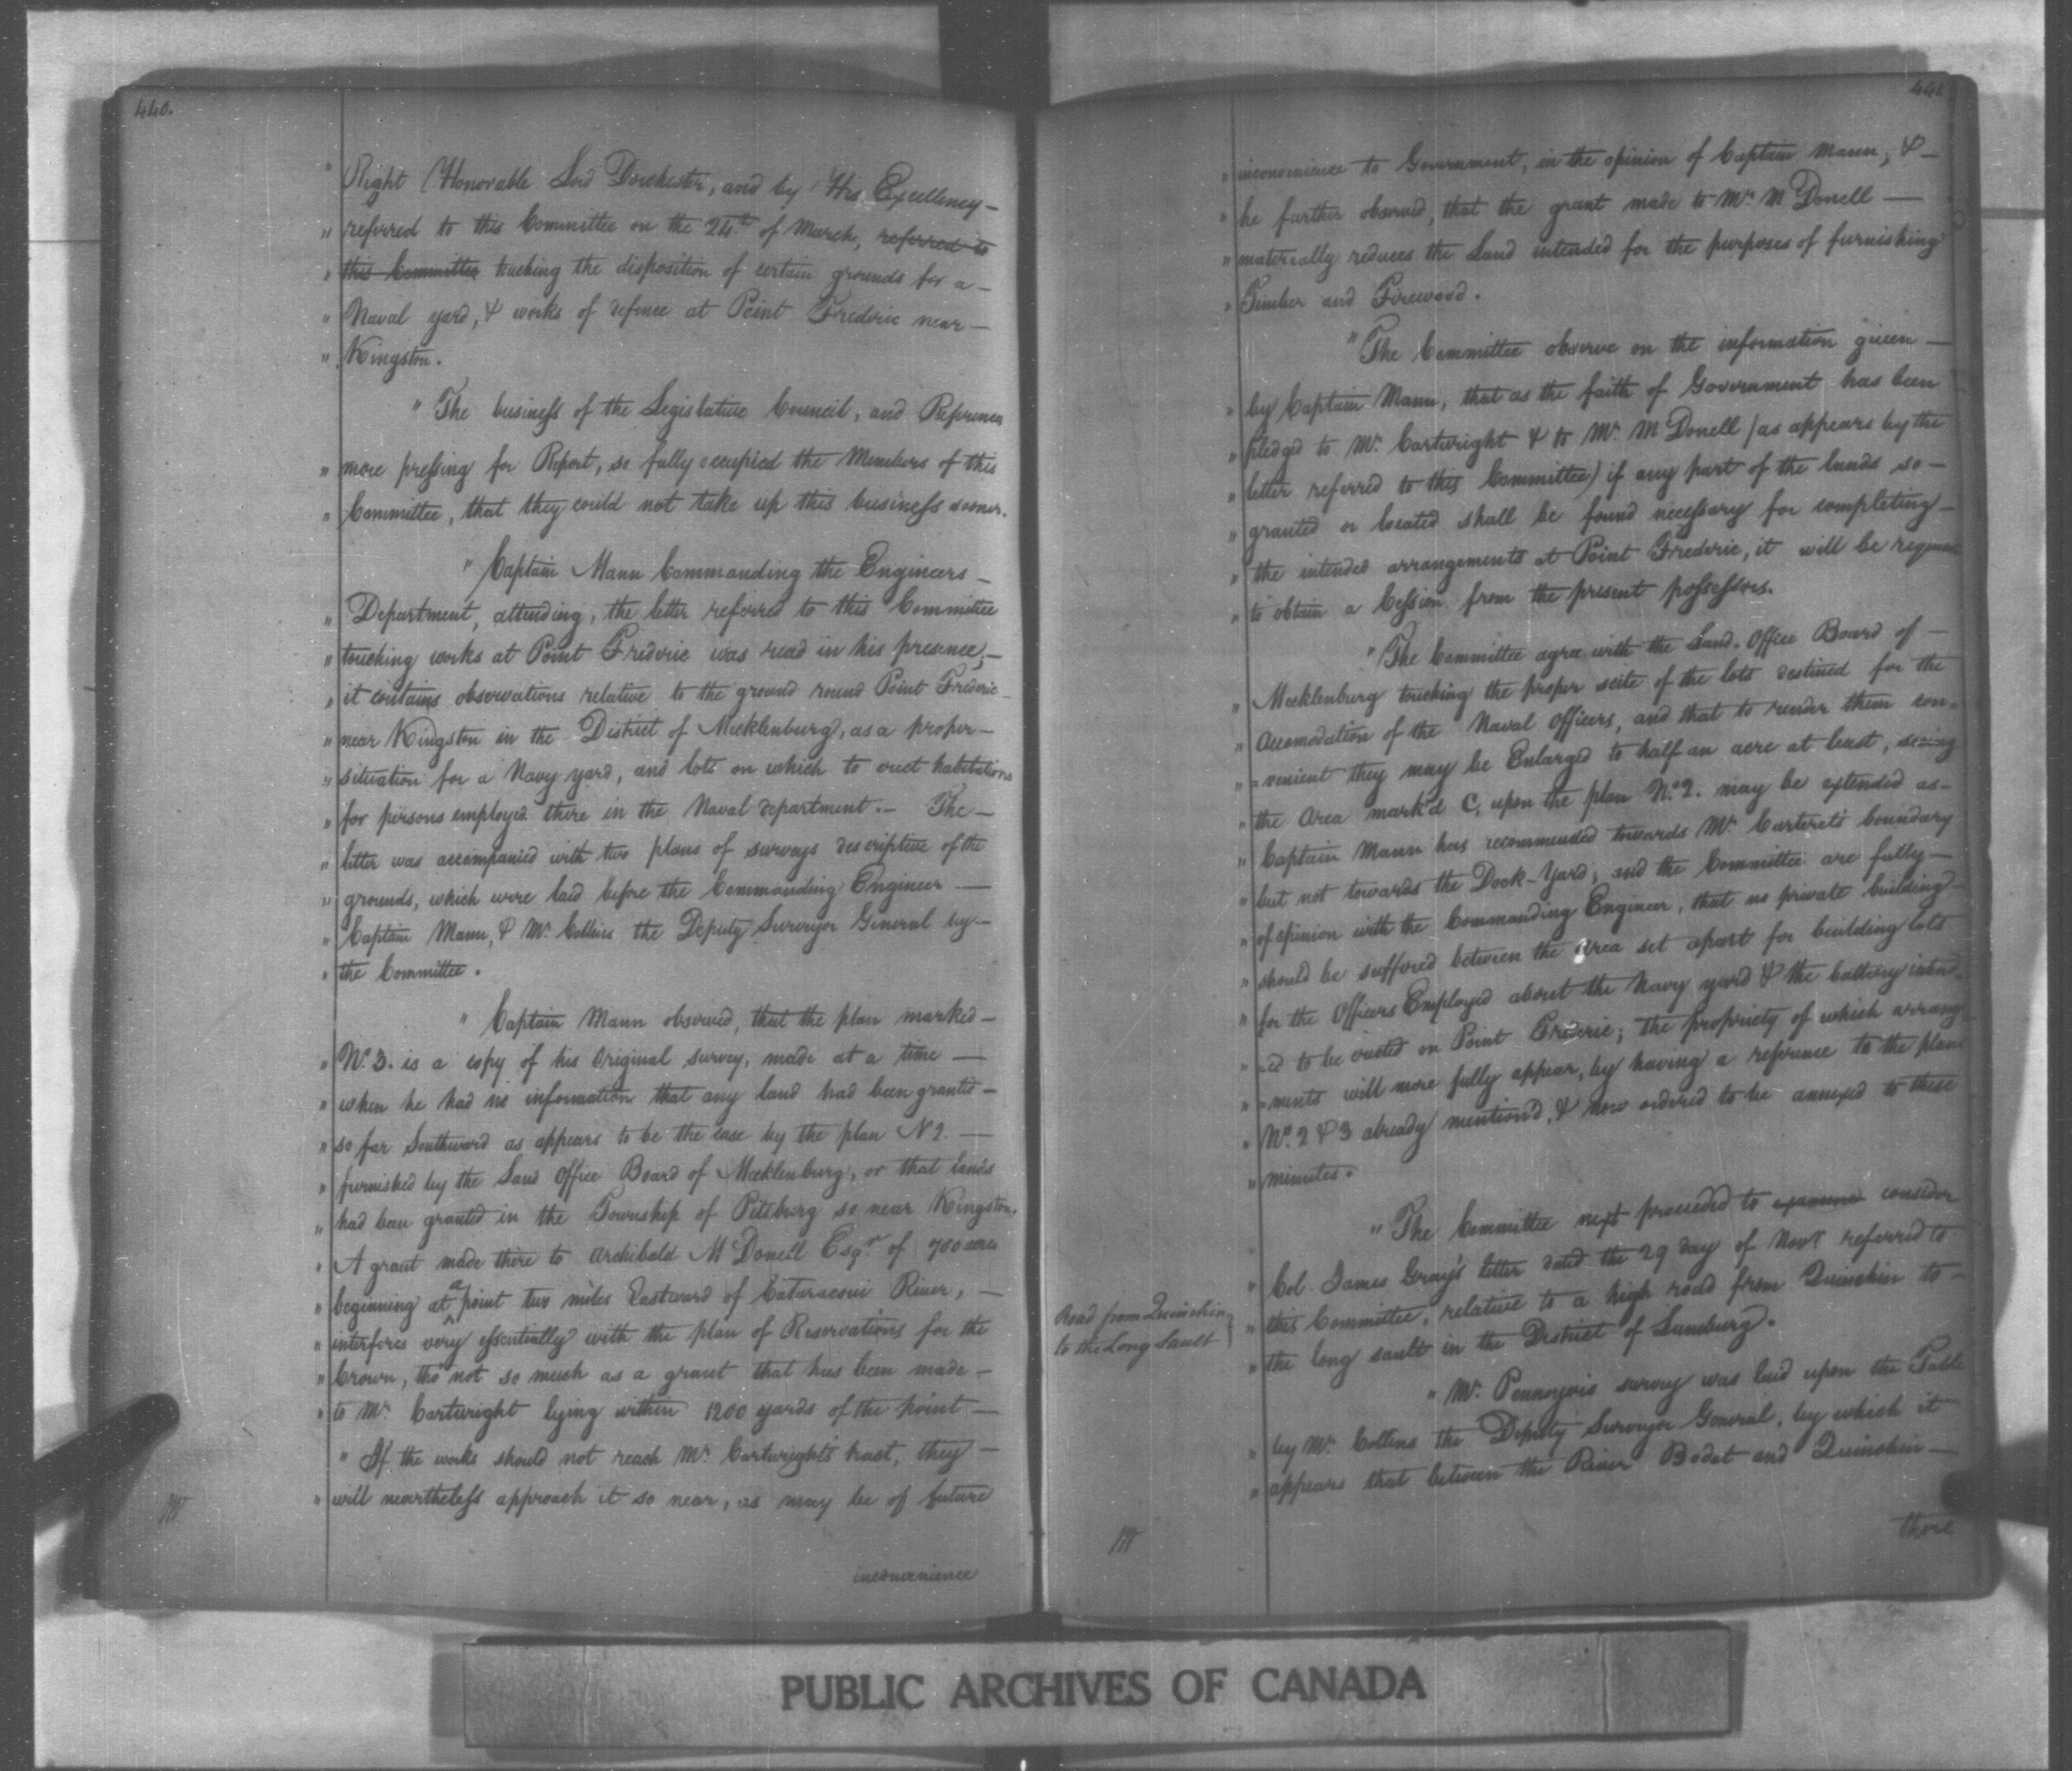 440.
" Right Honorable Lord Dorchester, and by His Excellency –
" referred to this Committee on the 24th of March, referred to
" this Committee touching the disposition of certain grounds for a –
" Naval yard, & works of defence at Point Frederic near –
" Kingston.
" The business of the Legislative Council, and References
" more pressing for Report, so fully occupied the Members of this
" Committee, that they could not take up this business sooner.
" Captain Mann Commanding the Engineers –
" Department, attending, the letter referred to this Committee
" touching works at Point Frederic was read in his presence, –
" it contains observations relative to the ground round Point Frederic –
" near Kingston in the District of Mecklenburg, as a proper –
" situation for a Navy yard, and lots on which to erect habitations
" for persons employed there in the Naval department. – The –
" letter was accompanied with two plans of surveys descriptive of the
" grounds, which were laid before the Commanding Engineer —
" Captain Mann, & Mr. Collins the Deputy Surveyor General by –
" the Committee.
" Captain Mann observed, that the plan marked –
" No. 3. is a copy of his original survey, made at a time —
" when he had no information that any land had been granted –
" so far Southward as appears to be the case by the plan No 2. —
" furnished by the Land Office Board of Mecklenburg, or that lands
" had been granted in the Township of Pitsburg so near Kingston.
" A grant made there to Archibald McDonell Esqr. of 700 acres
" beginning at a point two miles Eastward of Cataracoui River, —
" interferes very essentially with the plan of Reservations for the
" Crown, tho' not so much as a grant that has been made –
" to Mr. Cartwright lying within 1200 yards of the point —
" If the works should not reach Mr. Cartwright's tract, they –
" will neartheless approach it so near, as may be of future
inconvenience
441
" inconvenience to Government, in the opinion of Captain Mann, & –
" he further observed, that the grant made to Mr. McDonell —
" materially reduces the Land intended for the purposes of furnishing
" Timber and Firewood.
" The Committee observe on the information given –
" by Captain Mann, that as the faith of Government has been
" pledged to Mr. Cartwright & to Mr. McDonell (as appears by the
" letter referred to this Committee) if any part of the lands so –
" granted or located shall be found necessary for completing –
" the intended arrangements at Point Frederic, it will be
" to obtain a Cession from the present possessors.
" The Committee agree with the Land Office Board of –
" Mecklenburg touching the proper scite of the lots destined for the
" Accomodation of the Naval Officers, and that to render them con=
" =venient they may be Enlarged to half an acre at least, seeing
" the Area mark'd C, upon the plan No. 2. may be extended as –
" Captain Mann has recommended towards Mr. Carteret's boundary
" but not towards the Dock-Yard; and the Committee are fully –
" of opinion with the Commanding Engineer, that no private building –
" should be suffered between the Area set apart for building lots
" for the Officers Employed about the Navy yard & the battery intend=
" =ed to be erected on Point Frederic; the propriety of which arrange
" =ments will more fully appear, by having a reference to the plan
" No. 2 & 3 already mention'd, & now ordered to be annexed to these
" minutes.
" The Committee next proceeded to examine consider
" Col. James Gray's letter dated the 29 day of Novr referred to
" this Committee, relative to a high road from Quinchin to –
" the long sault in the District of Luneburg.
Road from Quinchin
to the Long Sault
" Mr. Pennoyers survey was laid upon the Table
" by Mr. Collins the Deputy Surveyor General, by which it
" appears that between the River Bodet and Quinchin –
there
PUBLIC ARCHIVES OF CANADA